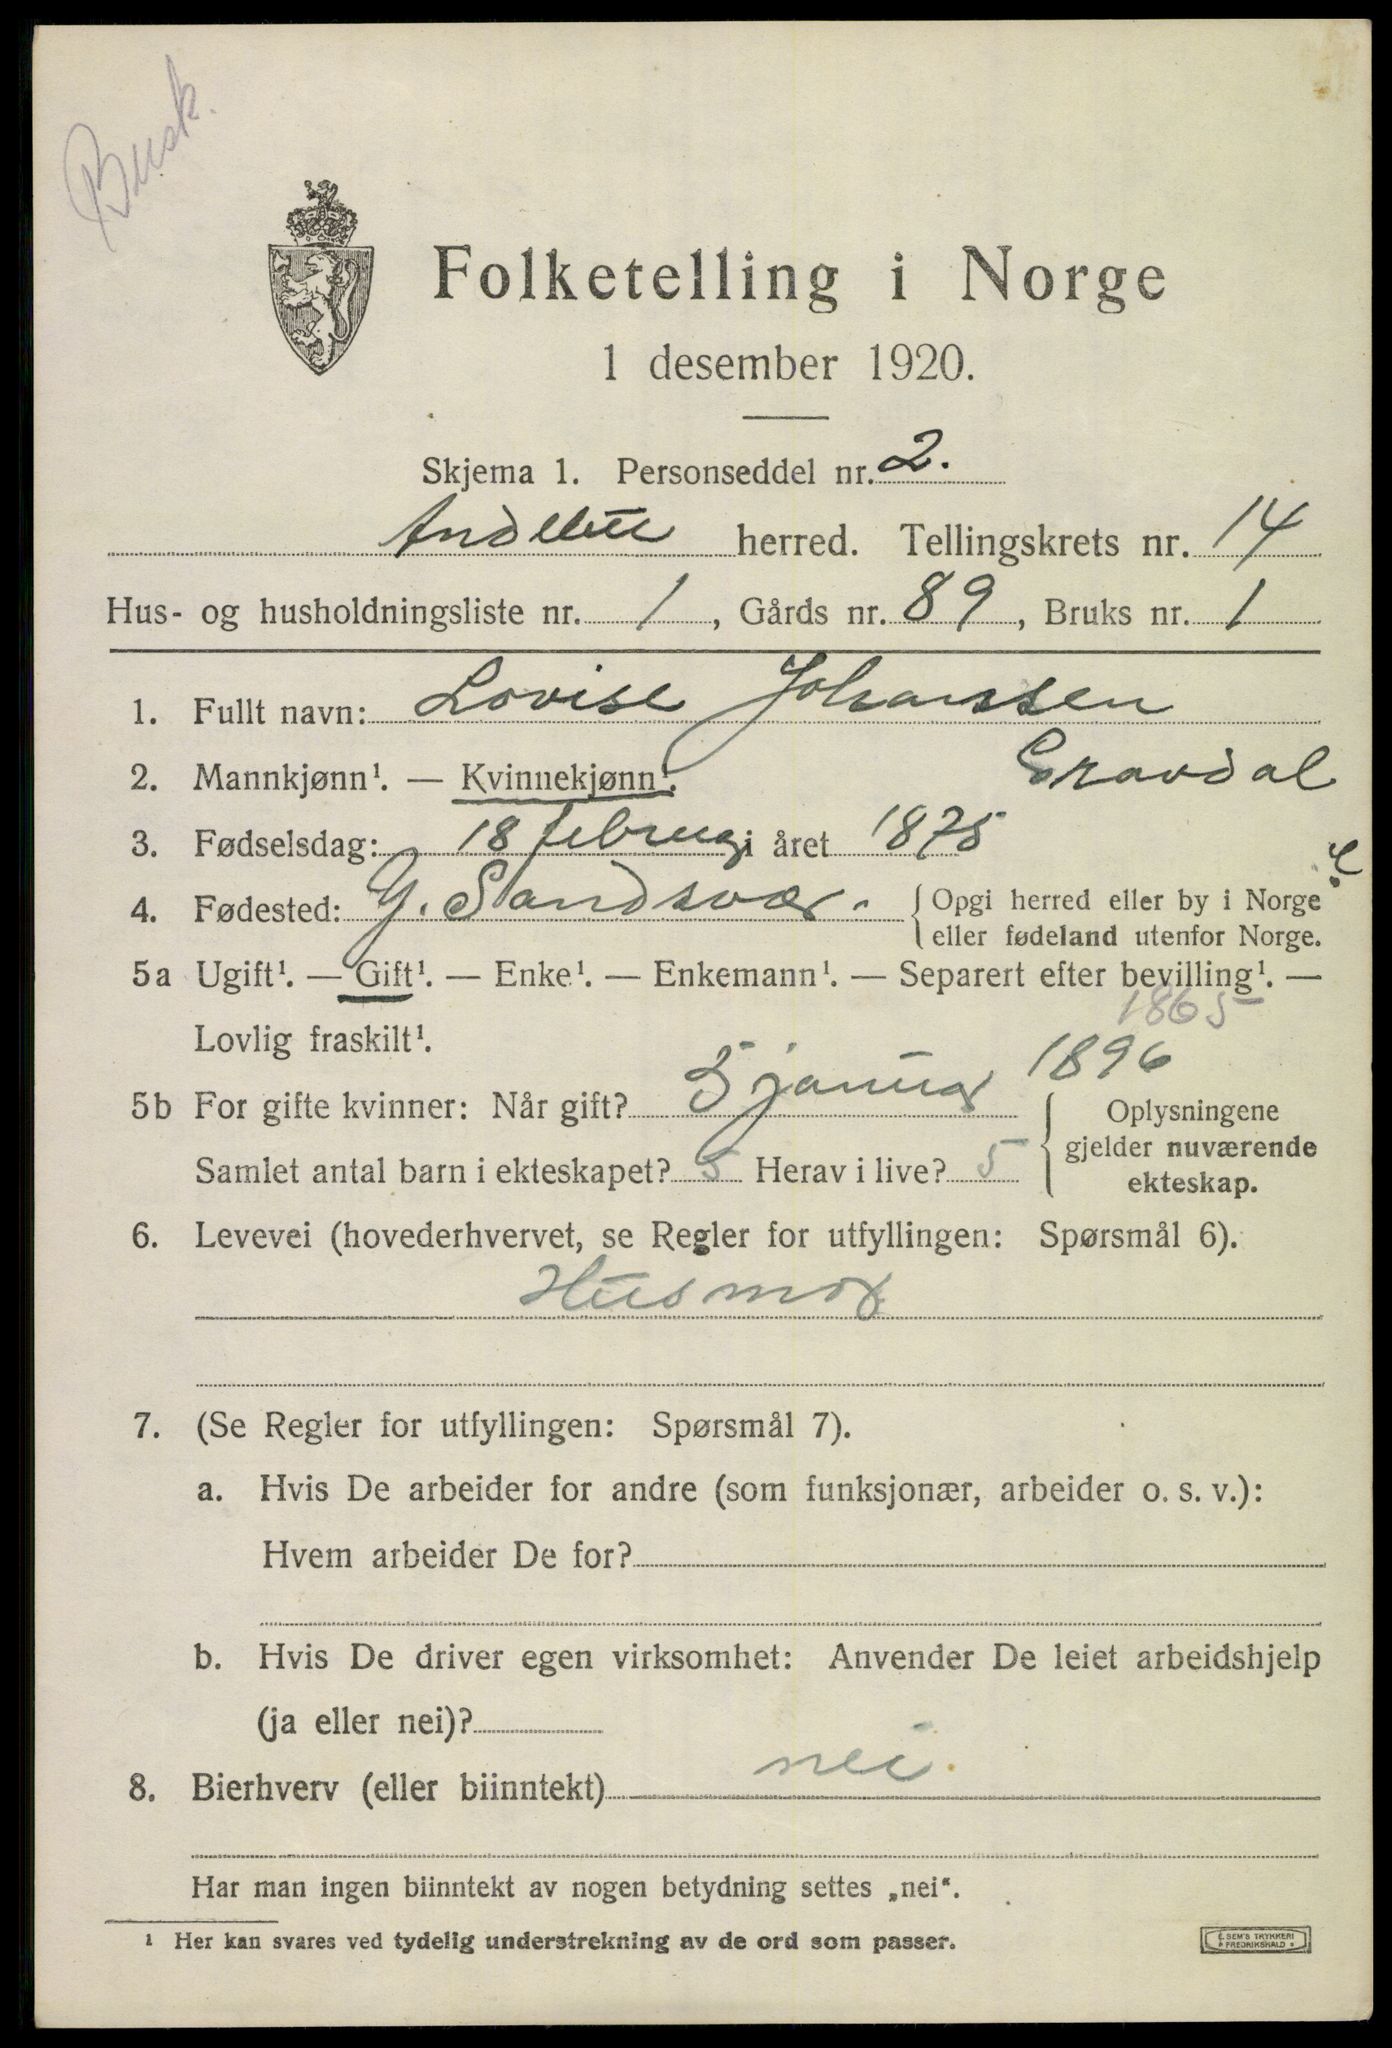 Busk.
Folketelling i Norge
1 desember 1920.
Skjema 1. Personseddel nr. 2.
Andebu herred. Tellingskrets nr. 14
Hus- og husholdningsliste nr. 1, Gårds nr. 89, Bruks nr. 1
1. Fullt navn: Lovise Johanssen
Gravdal
2. Mannkjønn¹. — Kvinnekjønn¹.
3. Fødselsdag: 18 februar i året 1875
4. Fødested: Y. Sandsvær. { Opgi herred eller by i Norge
eller fødeland utenfor Norge.
5a Ugift¹. — Gift¹. — Enke¹. — Enkemann¹. — Separert efter bevilling¹. —
1865
Lovlig fraskilt¹.
5b For gifte kvinner: Når gift? 5 januar 1896
Samlet antal barn i ekteskapet? 5 Herav i live? 5
{ Oplysningene
gjelder nuværende
ekteskap.
6. Levevei (hovederhvervet, se Regler for utfyllingen: Spørsmål 6).
Husmor
7. (Se Regler for utfyllingen: Spørsmål 7).
a. Hvis De arbeider for andre (som funksjonær, arbeider o. s. v.):
Hvem arbeider De for?
b. Hvis De driver egen virksomhet: Anvender De leiet arbeidshjelp
(ja eller nei)?
8. Bierhverv (eller biinntekt) nei.
Har man ingen biinntekt av nogen betydning settes „nei“.
¹ Her kan svares ved tydelig understrekning av de ord som passer.
E. SEM'S TRYKKERI
FREDRIKSHALD